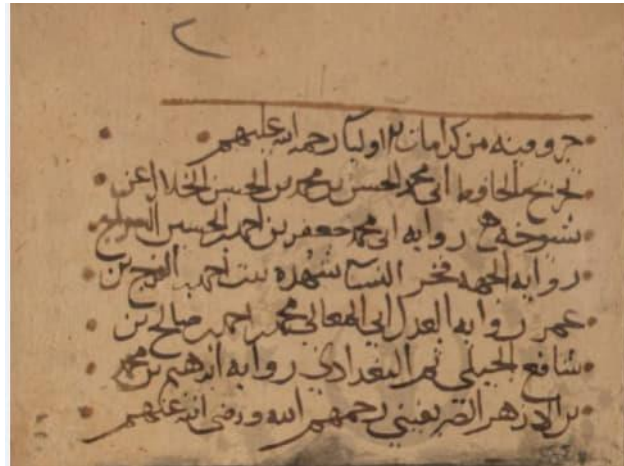 جزو فيه من كرامات الاوليا رحمة الله عليهم
تخريج الحافظ ابي محمد الحسن بن محمد بن الحسن الخلال عن
شيوخه رواية ابي محمد جعفر بن احمد بن الحسين السراج
رواية الجهة فخر النسا شهدة بنت احمد بن الفرج بن
عمر رواية العدل ابي المعالي محمد بن احمد بن صالح بن
شافع الجيلي ثم البغدادي رواية ابرهيم بن محمد
بن الازهر الصريفيني رحمهم الله ورضي الله عنهم